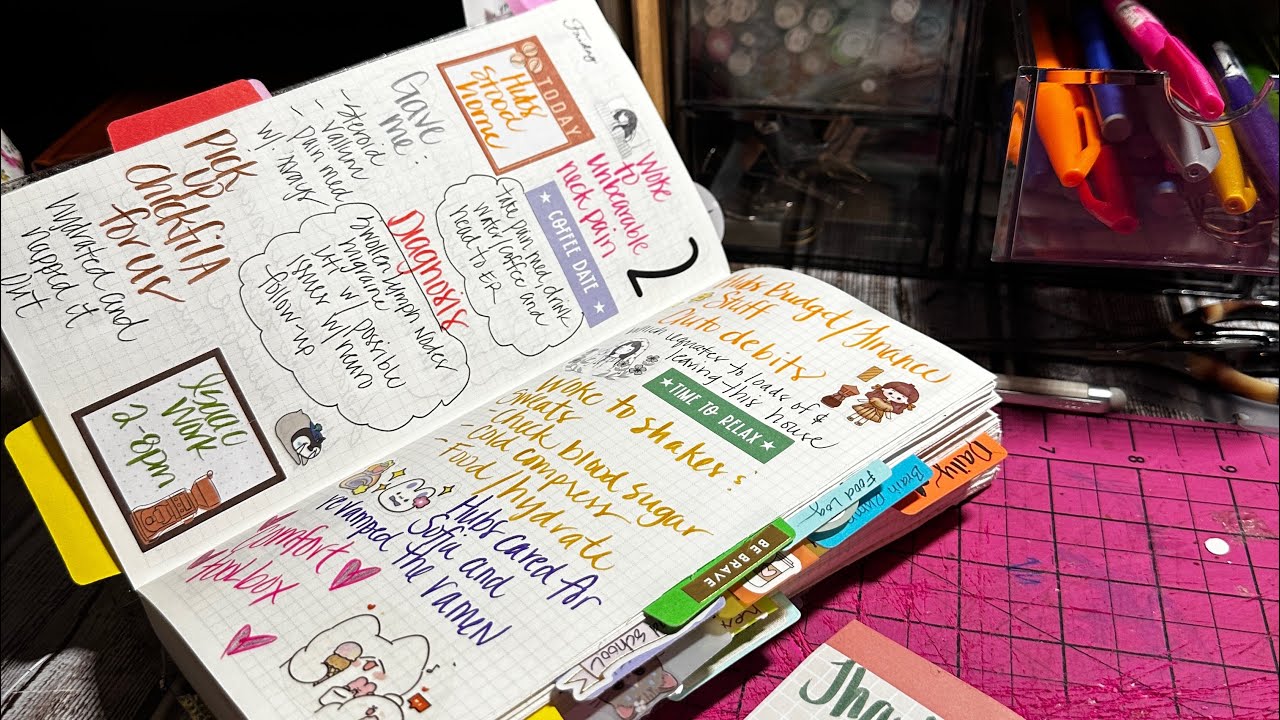 Friday
TODAY
Hubs
stood
home
Woke
to
unbearable
neck pain
COFFEE DATE
2
take pain med, drink
water/coffee and
head to ER
Gave
me:
- Steroid
- Valium
- Pain med
w/ says
Diagnosis
Swollen lymph nodes
migraine
w/ possible
issues w/ neuro
follow-up
Pick
up
ChickfilA
for us
hydrated and
napped it
out
leave
work
2-8pm
Hubs Budget/finance
Stuff
Auto debits
which equates to loads of $
leaving this house
TIME TO RELAX
Woke to shakes:
Sweats
- Check blood sugar
- Cold compress
- Food/hydrate
Hubs cared for
Sofia and
revamped the ramen
Comfort
toolbox
Daily
Brain Dump
Food Log
BE BRAVE
School
7
8
9